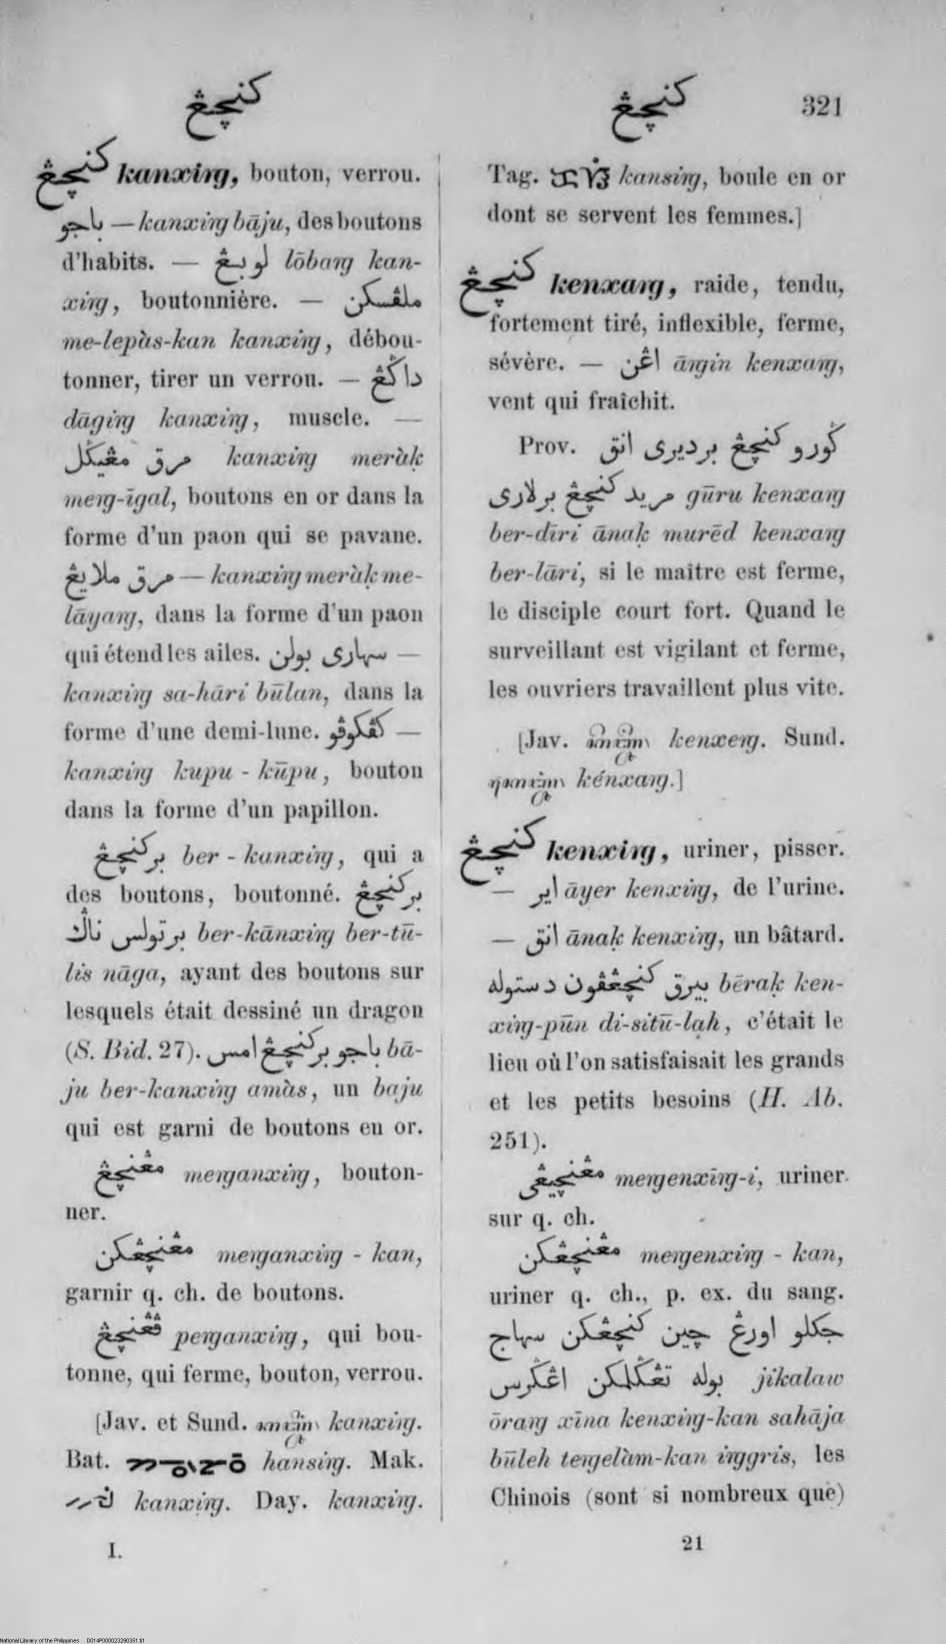 كنچڠ
كنچڠ 321
كنچڠ kanxiŋg, bouton, verrou.
باجو — kanxiŋg bāju, des boutons
d'habits. — لوبڠ lōbaŋg kan-
xiŋg, boutonnière. — ملڤسكن
me-lepàs-kan kanxiŋg, débou-
tonner, tirer un verrou. — داݢڠ
dāgiŋg kanxiŋg, muscle. —
مرق مڠيݢل kanxiŋg meràḳ
meŋg-īgal, boutons en or dans la
forme d'un paon qui se pavane.
مرق ملايڠ — kanxiŋg meràḳ me-
lāyaŋg, dans la forme d'un paon
qui étend les ailes. سهاري بولن —
kanxiŋg sa-hāri būlan, dans la
forme d'une demi-lune. كڤكوڤو —
kanxiŋg kupu - kūpu, bouton
dans la forme d'un papillon.
بركنچڠ ber - kanxiŋg, qui a
des boutons, boutonné. بركنچڠ
برتولس ناݢ ber-kānxiŋg ber-tū-
lis nāga, ayant des boutons sur
lesquels était dessiné un dragon
(S. Bid. 27). باجو بركنچڠ امس bā-
ju ber-kanxiŋg amàs, un baju
qui est garni de boutons en or.
مڠنچڠ meŋganxiŋg, bouton-
ner.
مڠنچڠكن meŋganxiŋg - kan,
garnir q. ch. de boutons.
ڤڠنچڠ peŋganxiŋg, qui bou-
tonne, qui ferme, bouton, verrou.
[Jav. et Sund. kanxiŋg.
Bat. hansiŋg. Mak.
kanxiŋg. Day. kanxiŋg.
I.
Tag. kansiŋg, boule en or
dont se servent les femmes.]
كنچڠ kenxaŋg, raide, tendu,
fortement tiré, inflexible, ferme,
sévère. — اڠن āŋgin kenxaŋg,
vent qui fraîchit.
Prov. ݢورو كنچڠ برديري انق
مريد كنچڠ برلاري gūru kenxaŋg
ber-dīri ānaḳ murēd kenxaŋg
ber-lāri, si le maître est ferme,
le disciple court fort. Quand le
surveillant est vigilant et ferme,
les ouvriers travaillent plus vite.
[Jav. kenxeŋg. Sund.
kénxaŋg.]
كنچڠ kenxiŋg, uriner, pisser.
— اير āyer kenxiŋg, de l'urine.
— انق ānaḳ kenxiŋg, un bâtard.
بيرق كنچڠڤون دستوله bēraḳ ken-
xiŋg-pūn di-sitū-lah, c'était le
lieu où l'on satisfaisait les grands
et les petits besoins (H. Ab.
251).
مڠنچيڠي meŋgenxīŋg-i, uriner
sur q. ch.
مڠنچڠكن meŋgenxiŋg - kan,
uriner q. ch., p. ex. du sang.
جكلو اورڠ چين كنچڠكن سهاج
بوله تڠݢلمكن اڠݢرس jikalaw
ōraŋg xīna kenxiŋg-kan sahāja
būleh teŋgelàm-kan iŋggris, les
Chinois (sont si nombreux que)
21
National Library of the Philippines